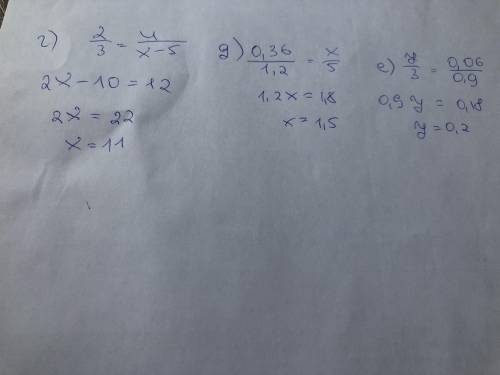 г) 2/3 = 4/(x-5)
2x-10=12
2x=22
x=11
д) 0,36/1,2 = x/5
1,2x=1,8
x=1,5
е) y/3 = 0,06/0,9
0,9y=0,18
y=0,2